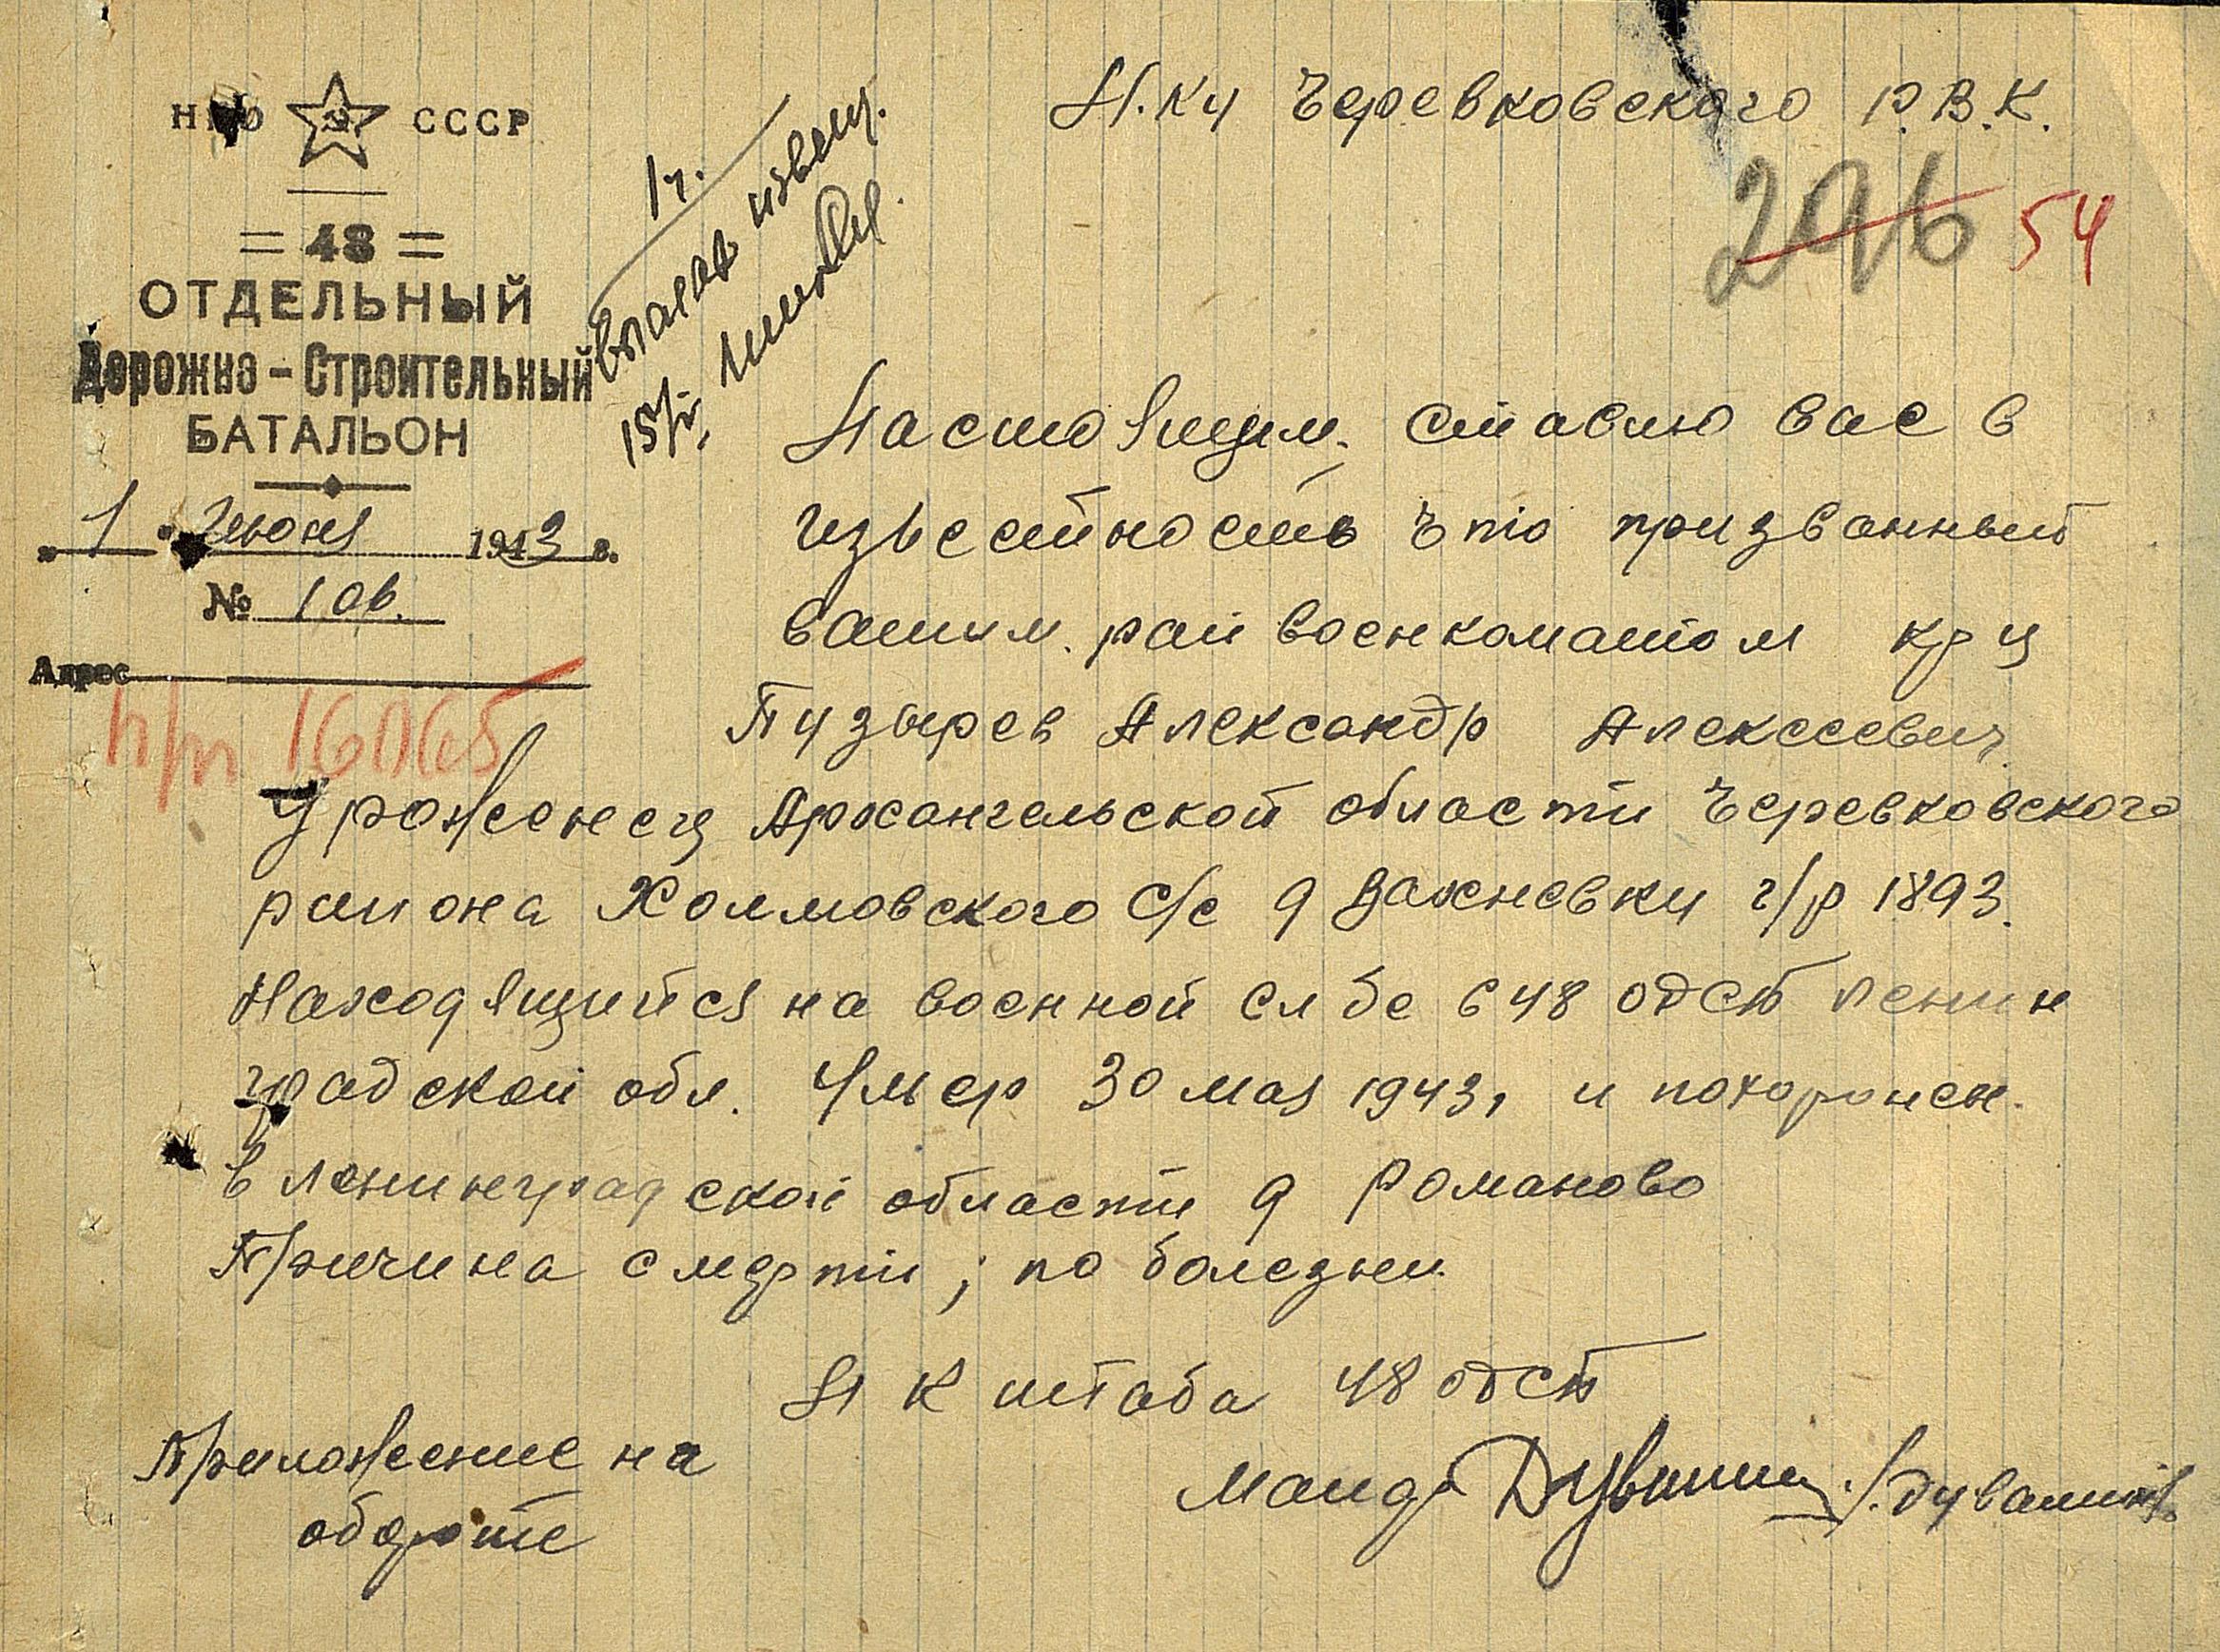 НКО СССР
= 48 =
ОТДЕЛЬНЫЙ
Дорожно-Строительный
БАТАЛЬОН
" 1 " Июня 1943 г.
№ 106.
Адрес
п/п 16065
1ч.
извещ.
Н.ку Черевковского Р.В.К.
296 54
Настоящем. ставлю вас в
известность что призванный
вашим. рай военкоматом кр ц
Пузырев Александр Алексеевич
Уроженец Архангельской области Черевковского
района Холмовского С/с д Вахневки г/р 1893.
Находящийся на военной сл бе в 48 одсб ленин
градской обл. Умер 30 мая 1943, и похоронен.
в ленинградской области д Романово
Причина смерти; по болезни
Н К штаба 48 одсб
Приложение на
обороте